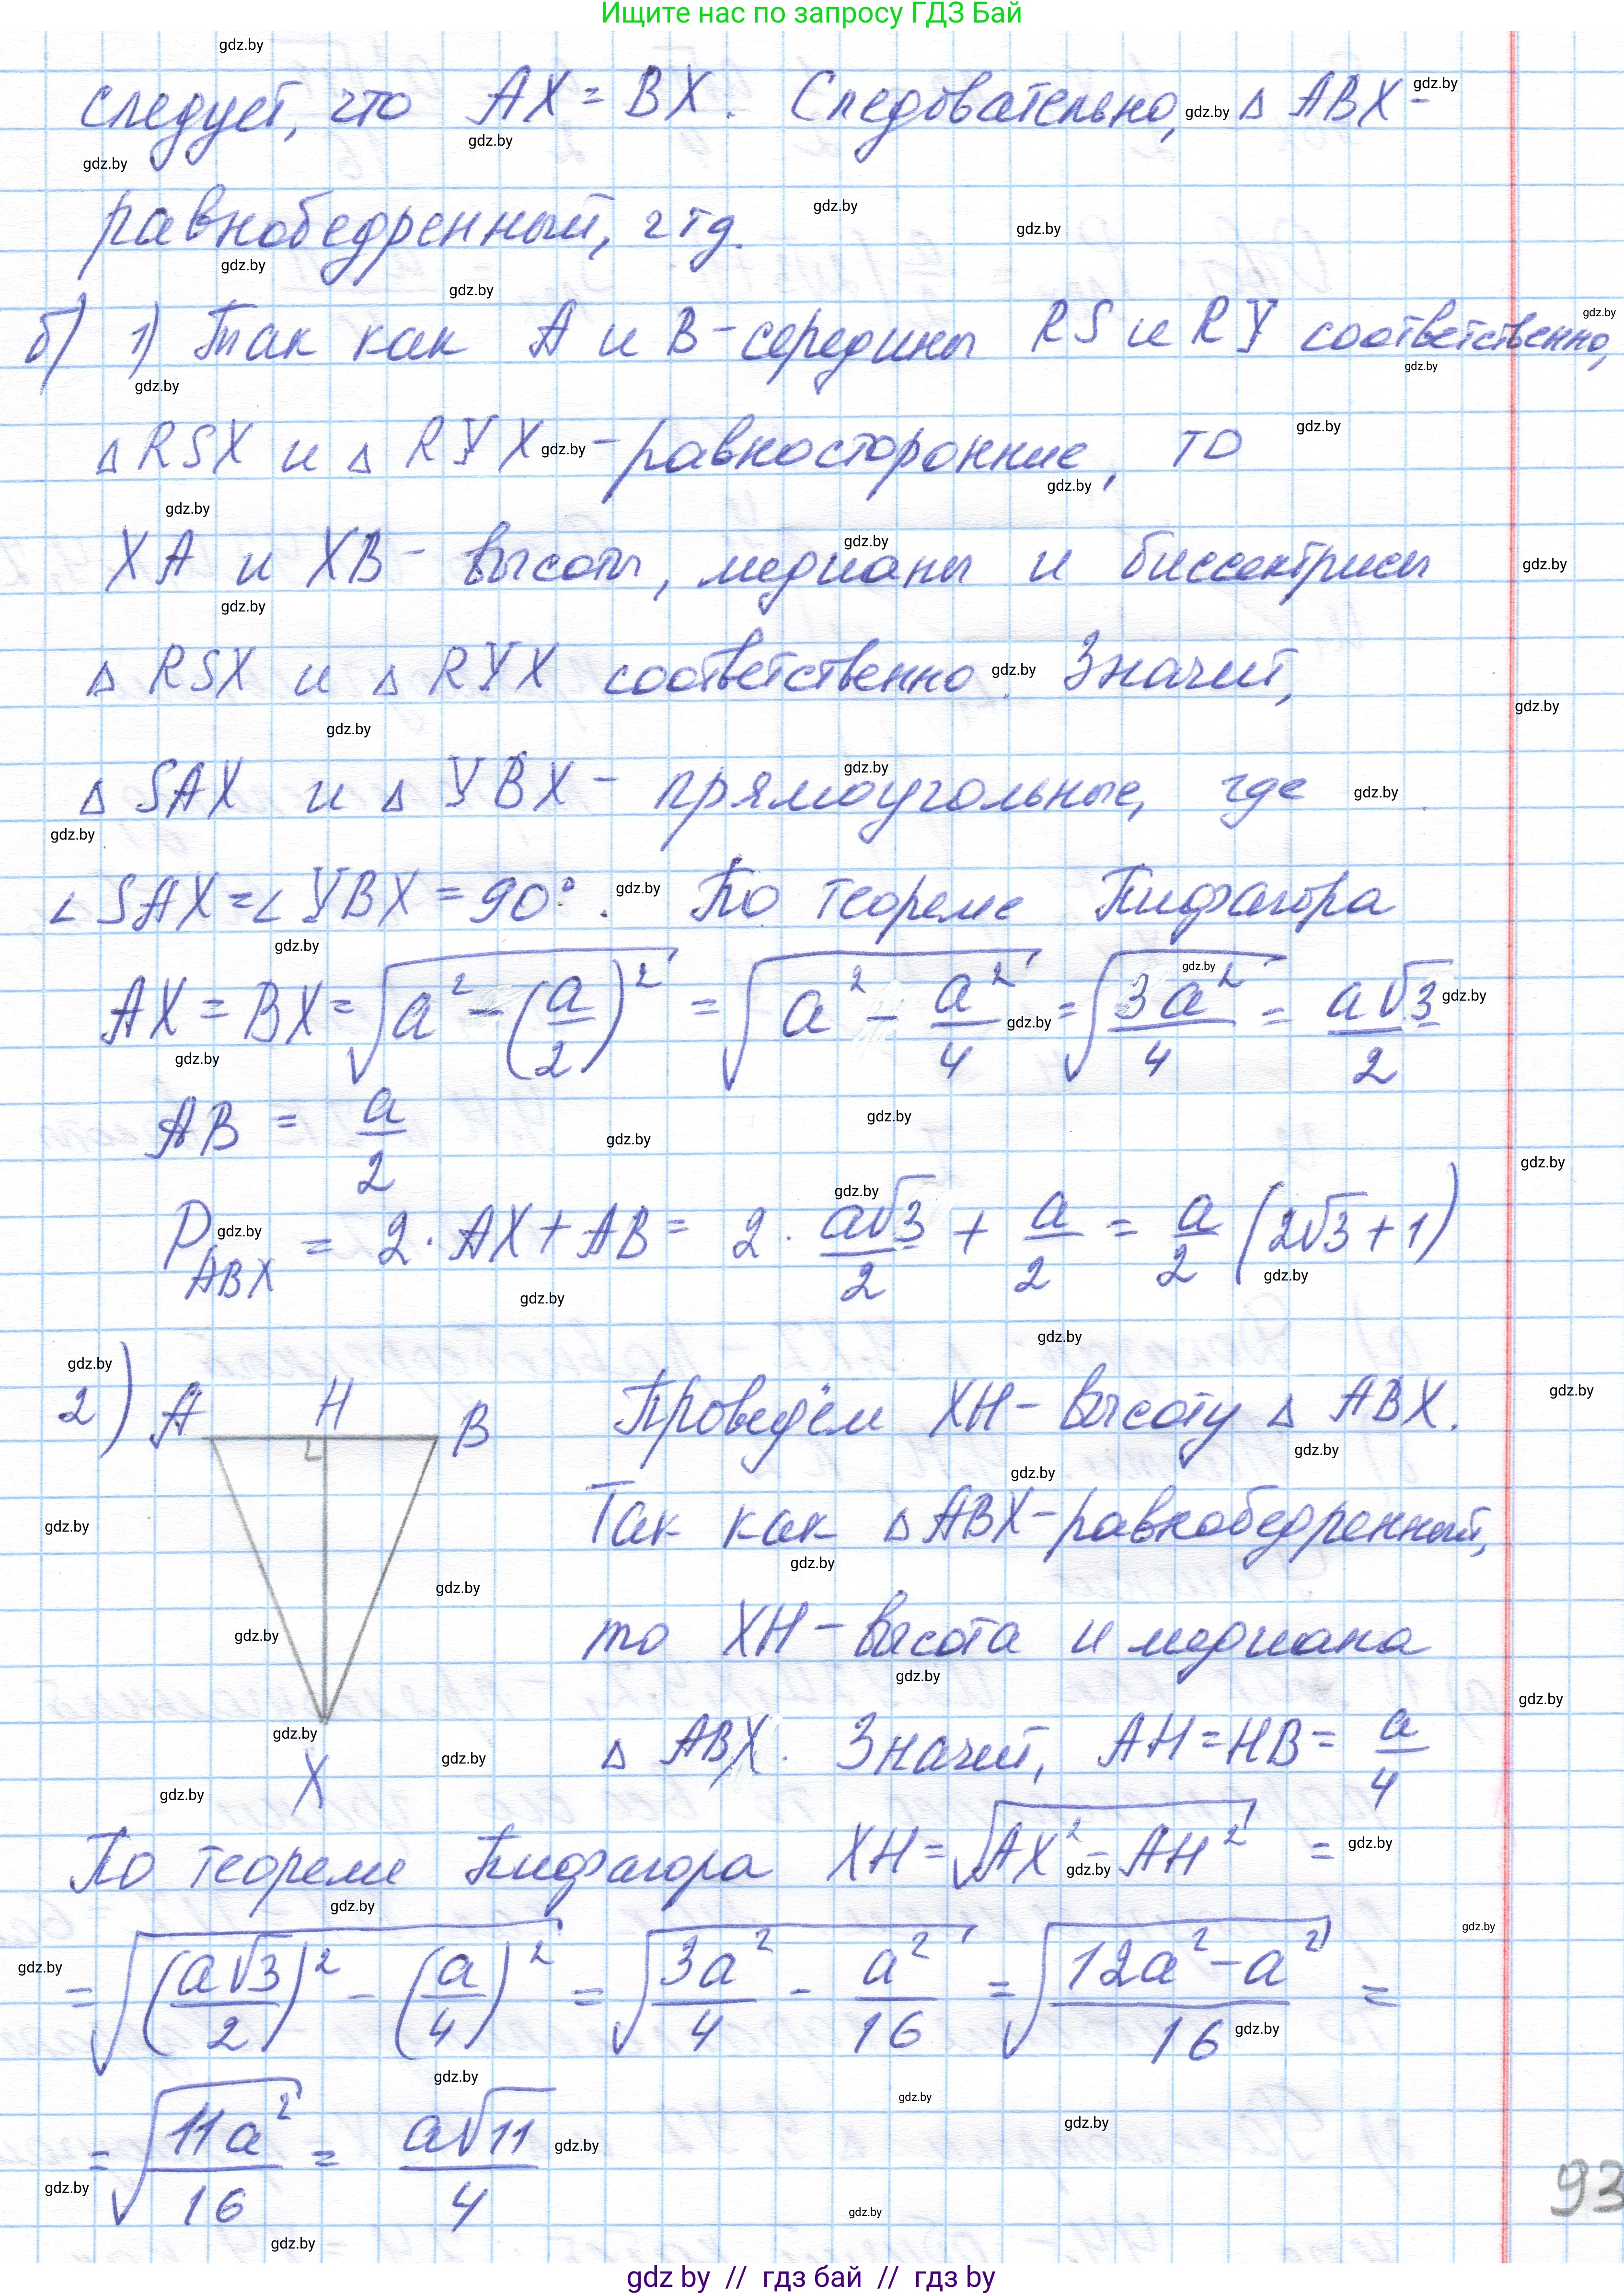 Ищите нас по запросу ГДЗ Бай
следует, что AX = BX. Следовательно, Δ ABX -
равнобедренный, чтд.
б) 1) Так как A и B - середины RS и RY соответственно,
Δ RSX и Δ RYX - равносторонние, то
XA и XB - высоты, медианы и биссектрисы
Δ RSX и Δ RYX соответственно. Значит,
Δ SAX и Δ YBX - прямоугольные, где
∠ SAX = ∠ YBX = 90°. По теореме Пифагора
AX = BX = √(a² - (a/2)²) = √(a² - a²/4) = √(3a²/4) = a√3/2
AB = a/2
P ABX = 2 · AX + AB = 2 · a√3/2 + a/2 = a/2 (2√3 + 1)
2) A H B Проведём XH - высоту Δ ABX.
Так как Δ ABX - равнобедренный,
то XH - высота и медиана
Δ ABX. Значит, AH = HB = a/4
X
По теореме Пифагора XH = √(AX² - AH²) =
= √((a√3/2)² - (a/4)²) = √(3a²/4 - a²/16) = √((12a² - a²)/16) =
= √(11a²/16) = a√11/4
93
gdz by // гдз бай // гдз by